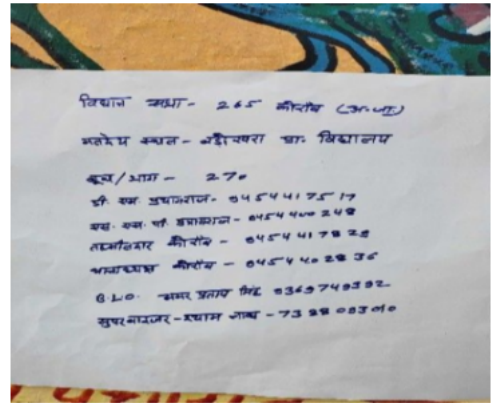 विधान सभा - 265 कोरांव (अ.जा.)
मतदेय स्थल - बड़ोखरा प्रा. विद्यालय
बूथ/भाग - 270
डी. एम. प्रयागराज - 9454417517
एस. एस. पी. प्रयागराज - 9454400248
तहसीलदार कोरांव - 9454417828
थानाध्यक्ष कोरांव - 9454402836
B.L.O. अमर प्रताप सिंह 9369749392
सुपरवाइजर - श्याम लाल -